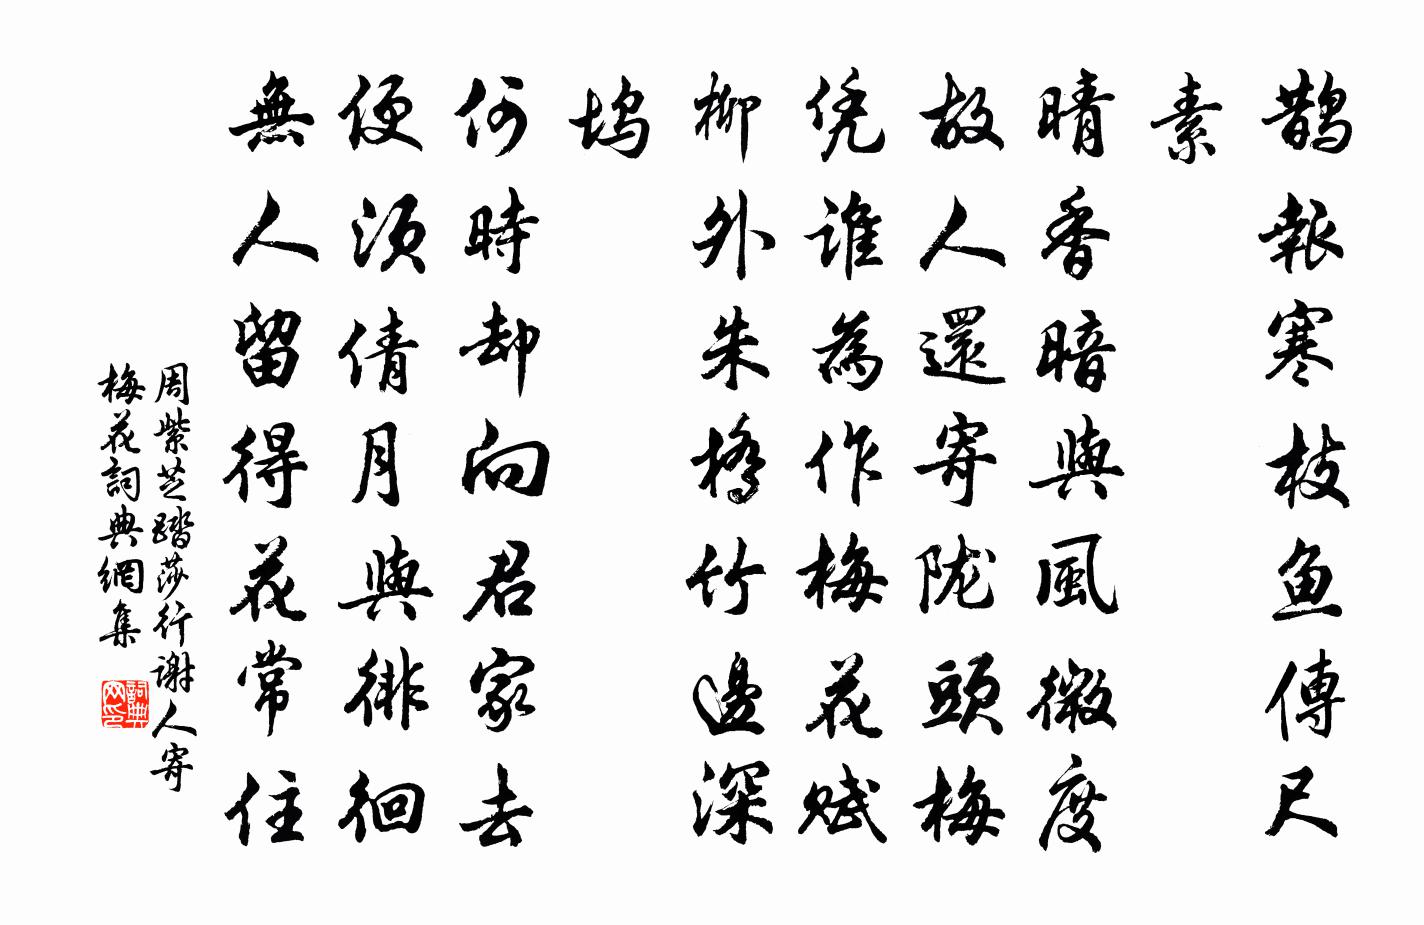 鹊報寒枝魚傳尺
素
晴香暗與風微度
故人還寄陇頭梅
凭誰為作梅花赋
柳外朱橋竹邊深
坞
何時却向君家去
便須倩月與徘徊
無人留得花常住
周紫芝踏莎行谢人寄
梅花詞典網集
詞典网印